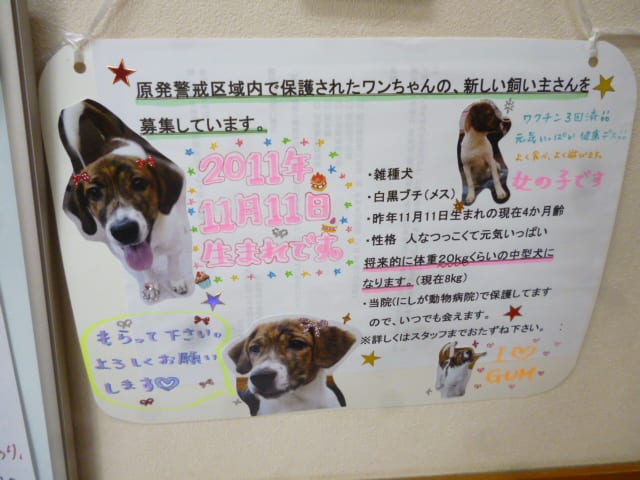 原発警戒区域内で保護されたワンちゃんの、新しい飼い主さんを
募集しています。
2011年
11月11日
生まれです。
ワクチン3回済
元気いっぱい 健康デス!!
よく食べ、よく遊びます。
女の子です
・雑種犬
・白黒ブチ(メス)
・昨年11月11日生まれの現在4か月齢
・性格 人なつっこくて元気いっぱい
将来的に体重20kgくらいの中型犬に
なります。(現在8kg)
・当院(にしが動物病院)で保護してます
ので、いつでも会えます。
※詳しくはスタッフまでおたずね下さい。
もらって下さい。
よろしくお願い
します♡
I ♡
GUM